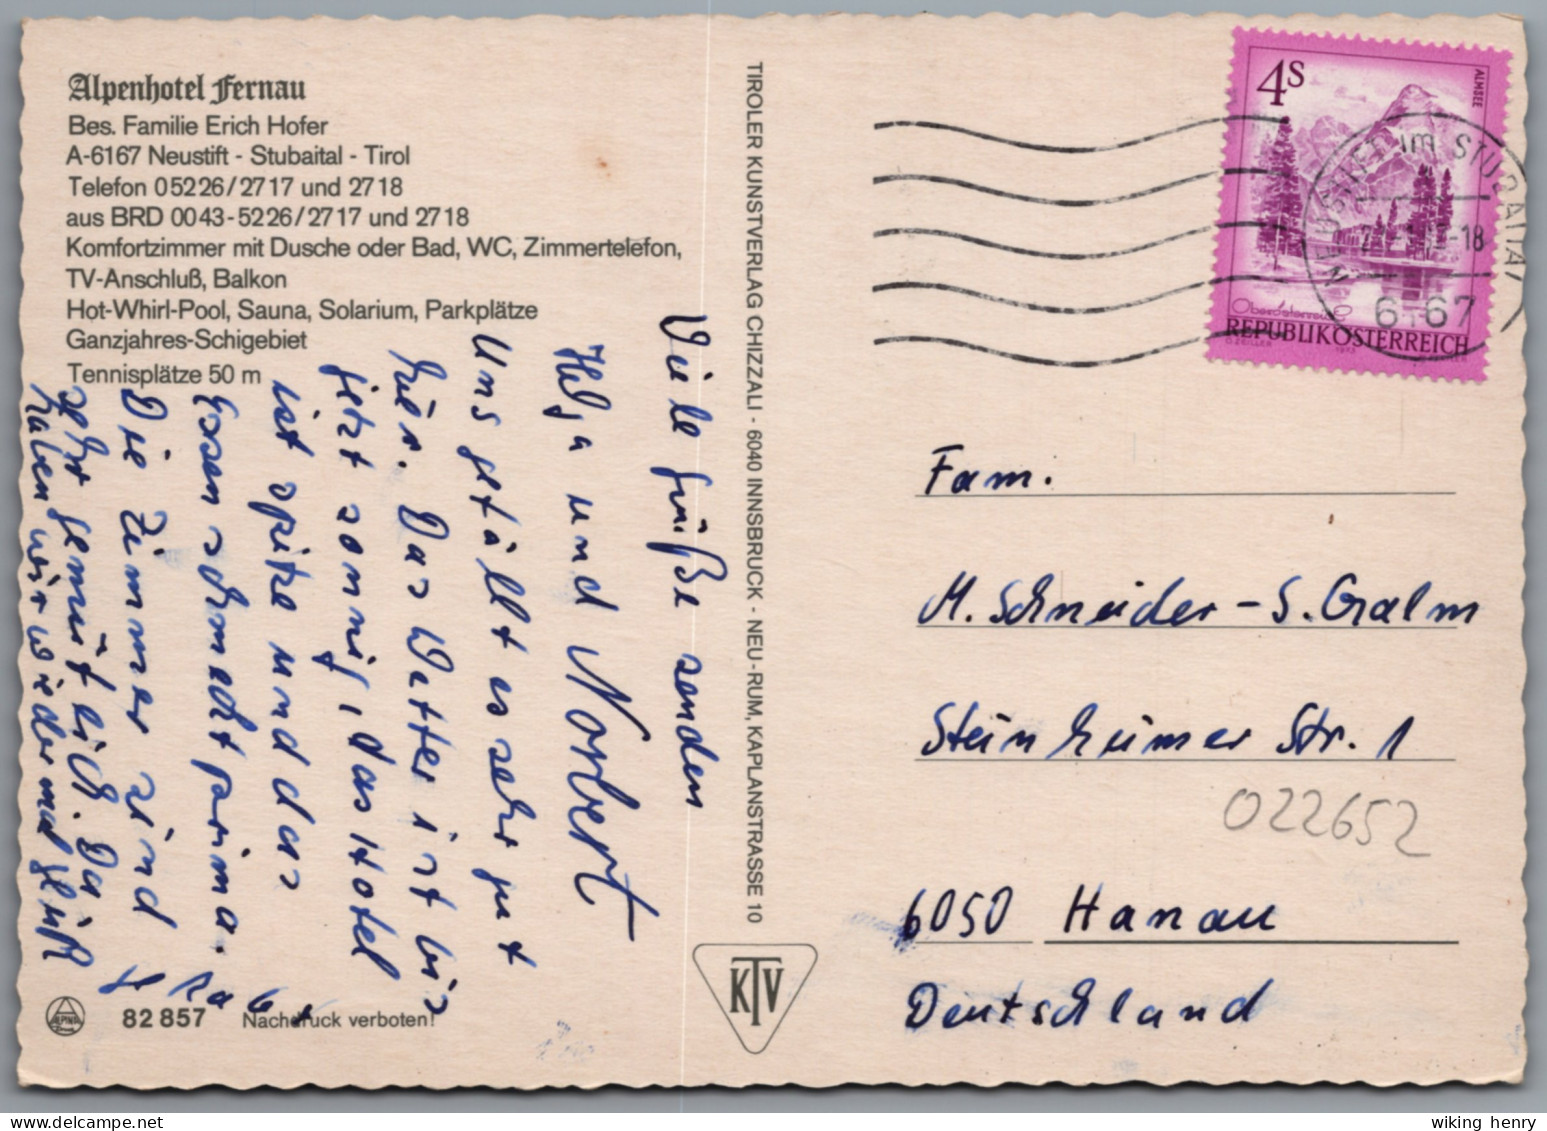 Alpenhotel Fernau
Bes. Familie Erich Hofer
A-6167 Neustift - Stubaital - Tirol
Telefon 05226/2717 und 2718
aus BRD 0043-5226/2717 und 2718
Komfortzimmer mit Dusche oder Bad, WC, Zimmertelefon,
TV-Anschluß, Balkon
Hot-Whirl-Pool, Sauna, Solarium, Parkplätze
Ganzjahres-Schigebiet
Tennisplätze 50 m
Viele Grüße senden
Helga und Norbert
Uns gefällt es sehr gut
hier. Das Wetter ist bis
jetzt sonnig, das Hotel
ist spitze und das
Essen schmeckt prima.
Die Zimmer sind
sehr gemütlich. Da
haben wir wieder mal
82 857 Nachdruck verboten!
TIROLER KUNSTVERLAG CHIZZALI - 6040 INNSBRUCK - NEU-RUM, KAPLANSTRASSE 10
KTV
4S
ALMSEE
Oberösterreich
REPUBLIK ÖSTERREICH
O. ZEILLER 1973
NEUSTIFT IM STUBAITAL
-18
6167
Fam.
M. Schneider - S. Gralm
Steinheimer Str. 1
022652
6050 Hanau
Deutschland
wiking henry